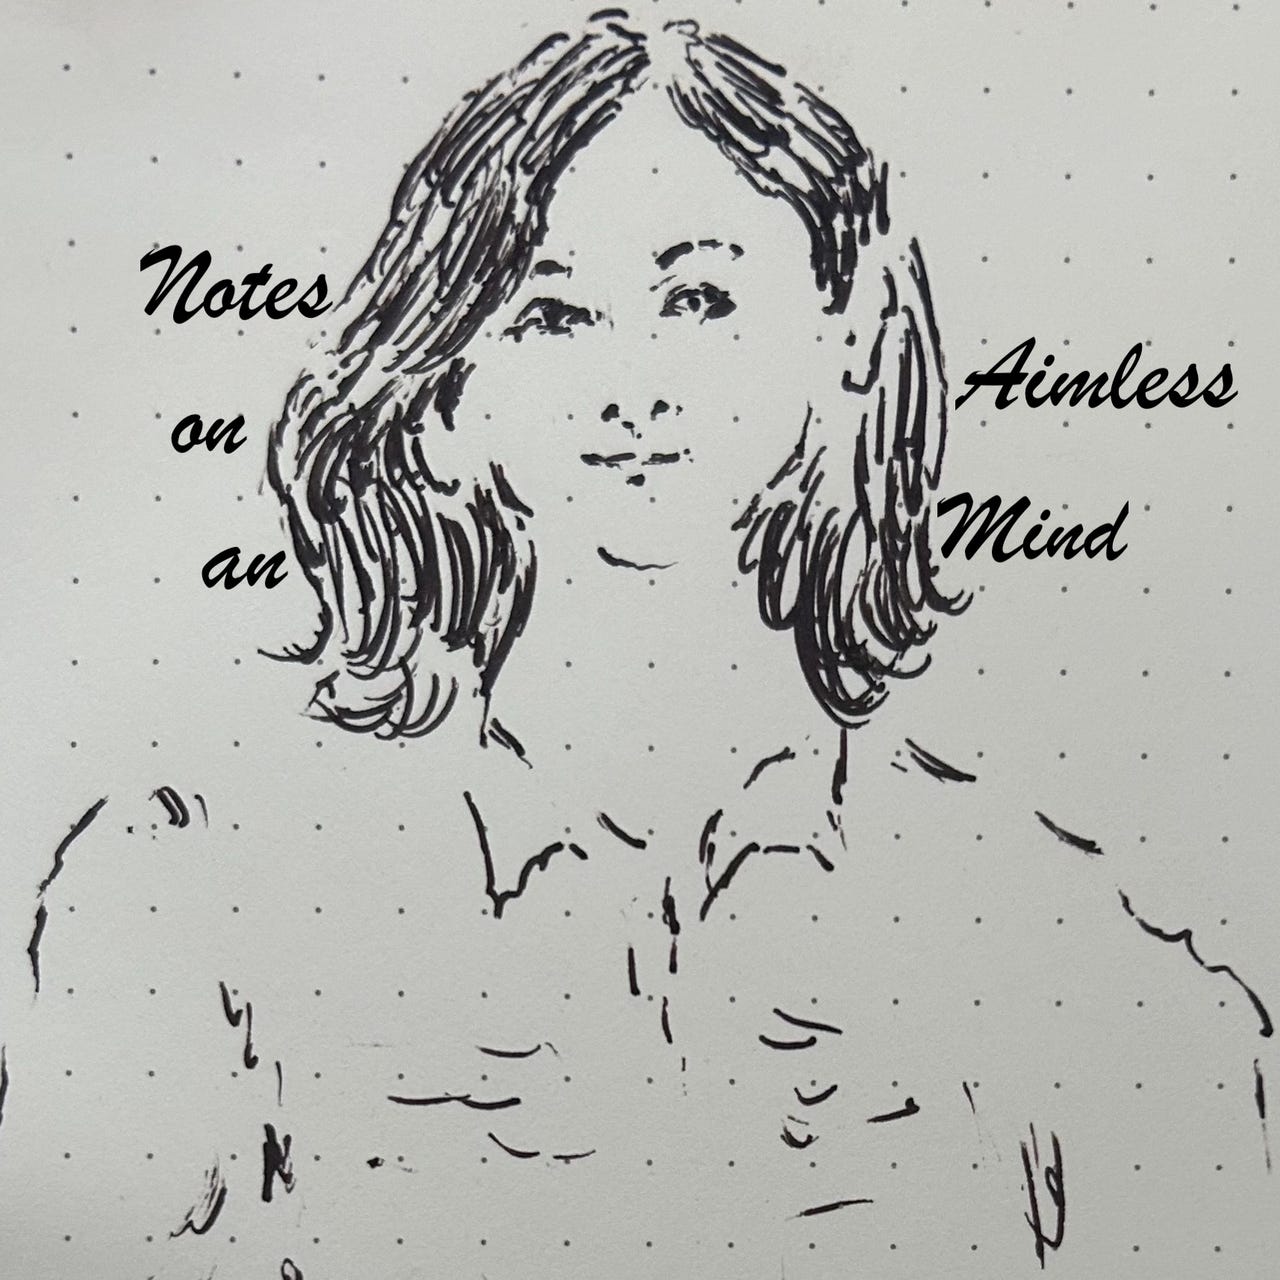 Notes
on
an
Aimless
Mind